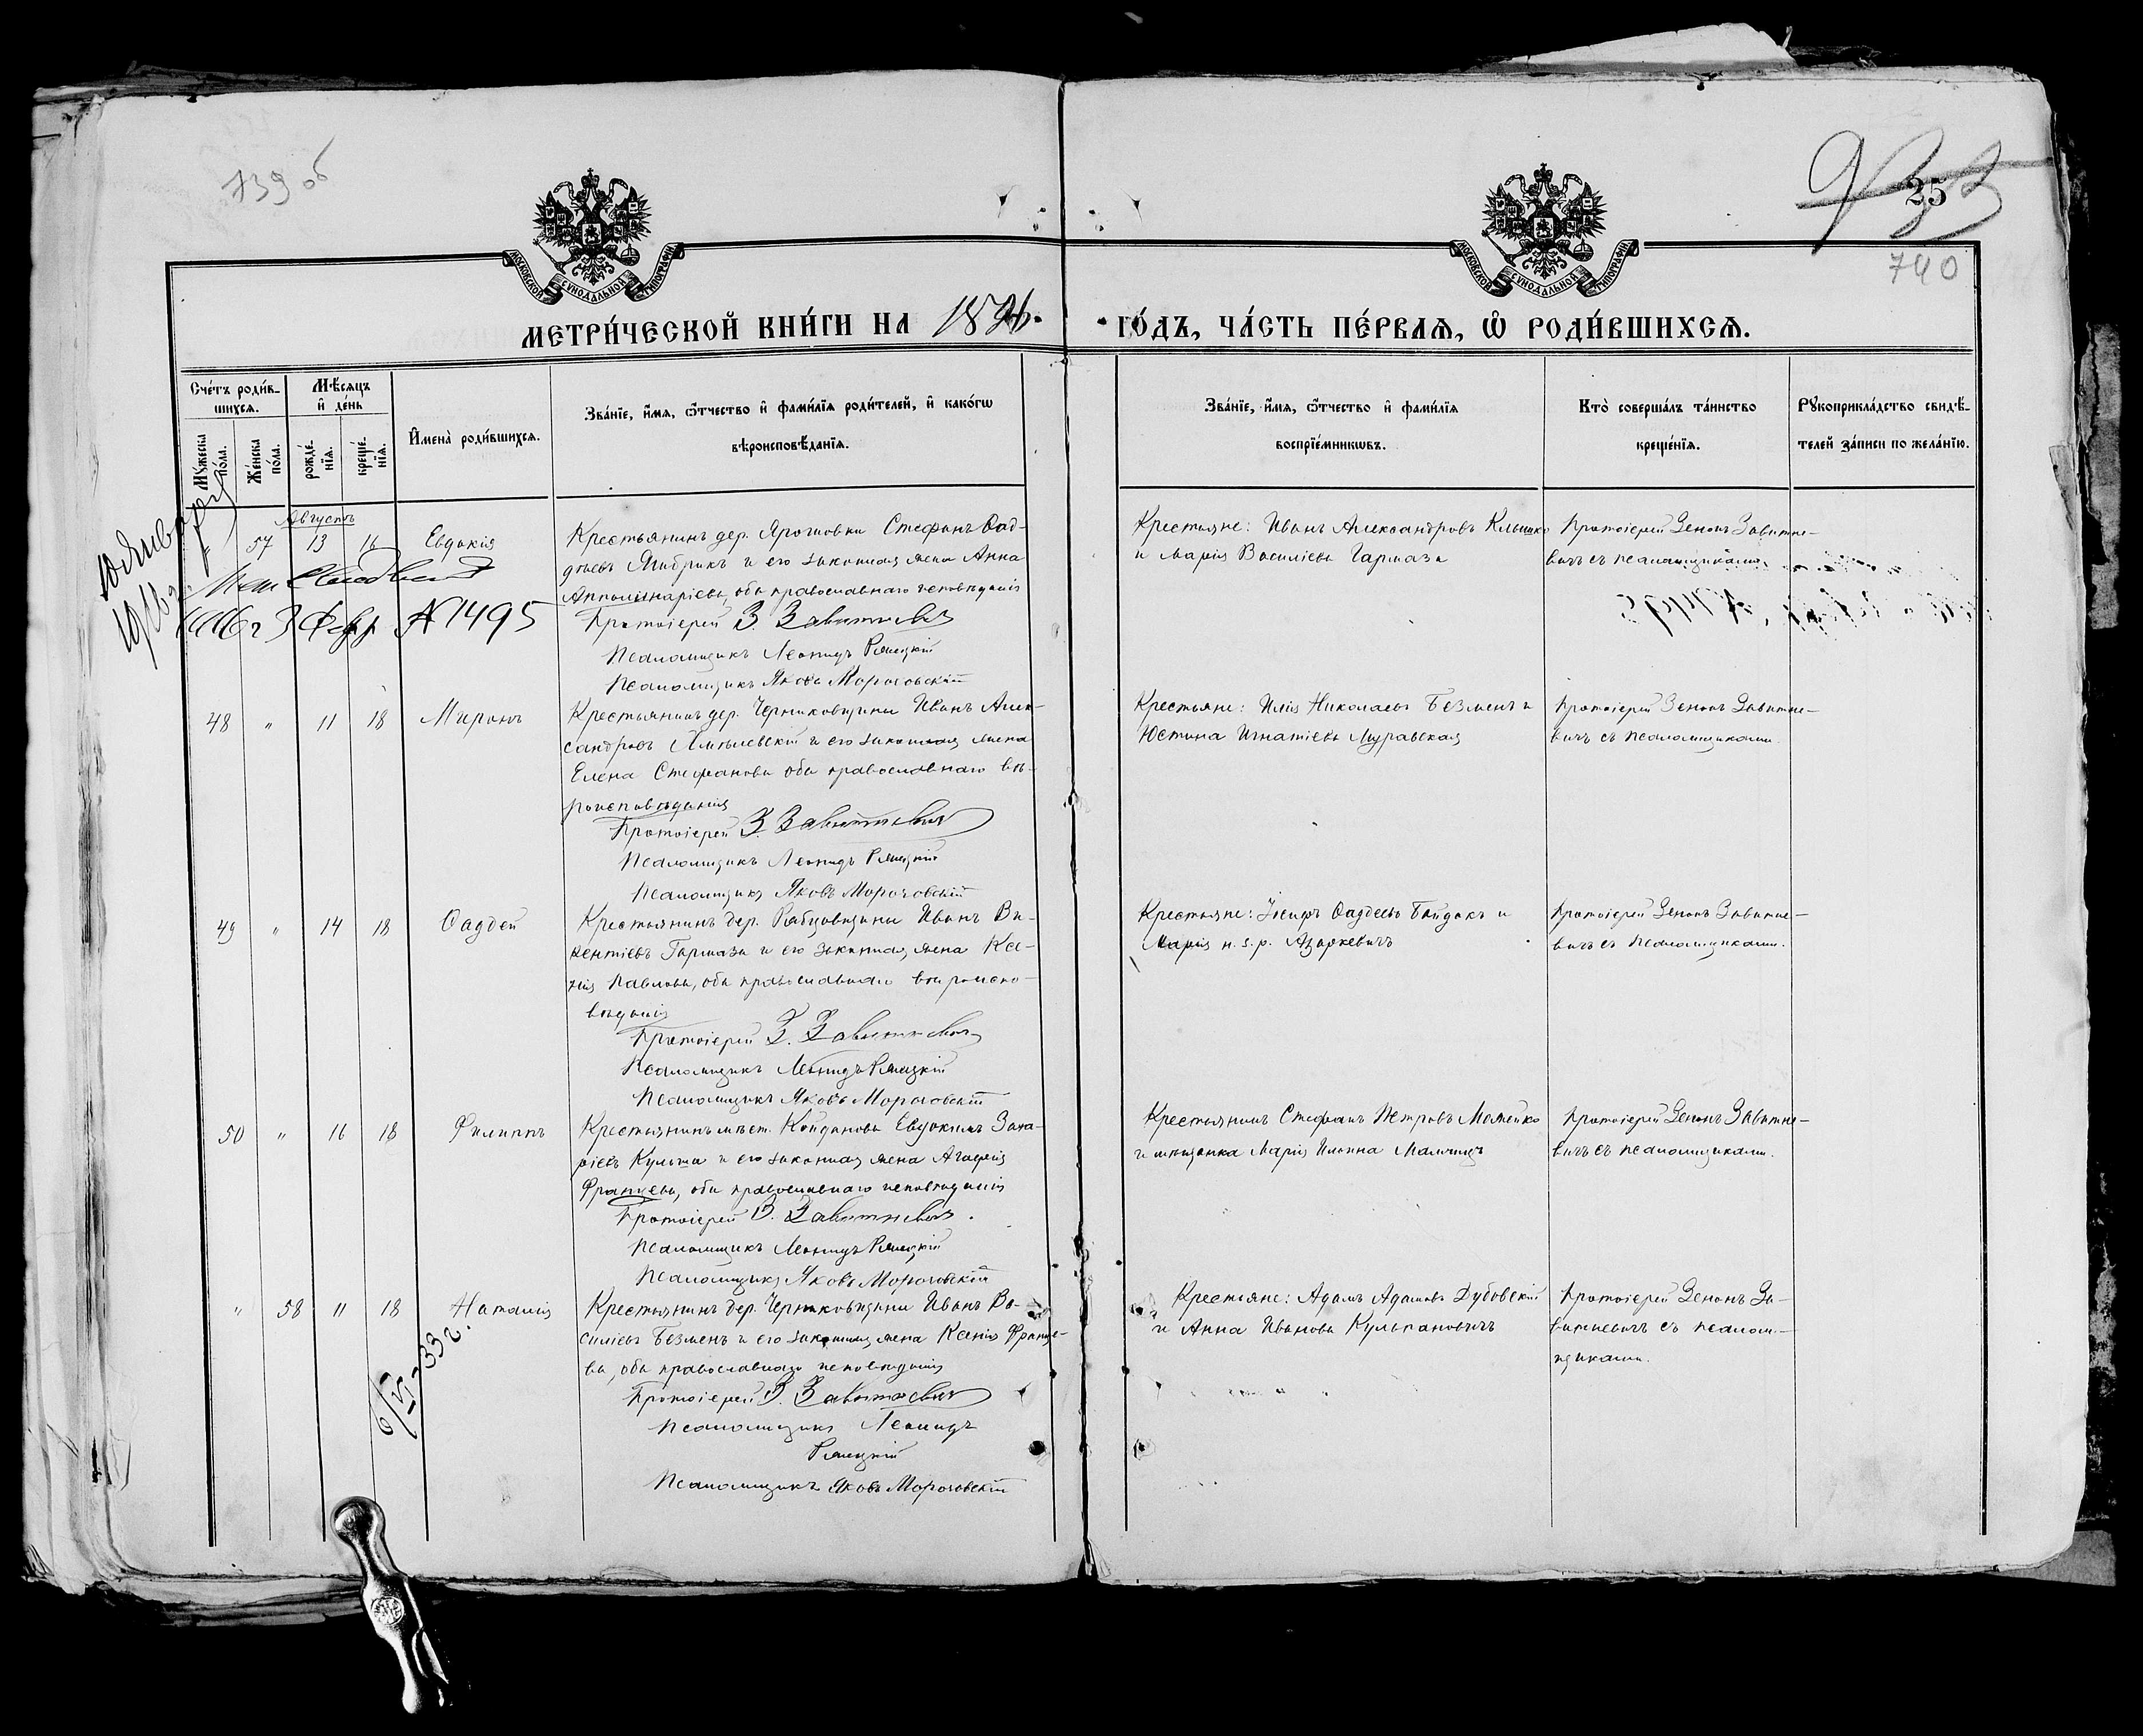 739 об
25
740
МОСКОВСКОЙ СѴНОДАЛЬНОЙ ТИПОГРАФІИ
МОСКОВСКОЙ СѴНОДАЛЬНОЙ ТИПОГРАФІИ
МЕТРИ́ЧЕСКОЙ КНИ́ГИ НА 1896.
ГО́ДЪ, ЧА́СТЬ ПЕ́РВАѦ, Ѡ҆ РОДИ́ВШИХСѦ.
Сче́тъ роди́в-
шихсѧ.
Мꙋ́жеска по́ла.
Же́нска по́ла.
Мѣ́сѧцъ
и҆ де́нь
рожде́-
нїѧ.
креще́-
нїѧ.
И҆мена̀ роди́вшихсѧ.
Зва́нїе, и҆́мѧ, ѻ҆́тчество и҆ фами́лїѧ роди́телей, и҆ како́гѡ
вѣроисповѣ́данїѧ.
Зва́нїе, и҆́мѧ, ѻ҆́тчество и҆ фами́лїѧ
воспрїе́мникѡвъ.
Кто̀ соверша́лъ та́инство
креще́нїѧ.
Рꙋкоприкла́дство свидѣ́-
телей за́писи по жела́нїю.
Августъ
" 57 13 16 Евдокія
Крестьянинъ дер. Ярошовки Стефанъ Ѳад-
дѣевъ Ямбрикъ и его законная жена Анна
Апполинаріева, оба православнаго исповѣданія
Протоіерей З. Завитневичъ
Псаломщикъ Леонидъ Рямецкій
Псаломщикъ Яковъ Морочовскій
Крестьяне: Иванъ Александровъ Клышко
и Марія Василіева Гармаза
Протоіерей Зенонъ Завитне-
вичъ съ псаломщиками.
10 Января
1916 г.
1916 г 3 Февр № 1495
48 " 11 18 Миронъ
Крестьянинъ дер. Черниковщины Иванъ Алек-
сандровъ и его законная жена
Елена Стефанова оба православнаго вѣ-
роисповѣданія
Протоіерей З. Завитневичъ
Псаломщикъ Леонидъ Рямецкій
Псаломщикъ Яковъ Морочовскій
Крестьяне: Илія Николаевъ Безменъ и
Юстина Игнатіева Муравская
Протоіерей Зенонъ Завитне-
вичъ съ псаломщиками.
49 " 14 18 Ѳаддей
Крестьянинъ дер. Рабцовщины Иванъ Ви-
кентіевъ Гармаза и его законная жена Ксе-
нія Павлова, оба православнаго вѣроиспо-
вѣданія
Протоіерей З. Завитневичъ
Псаломщикъ Леонидъ Рямецкій
Псаломщикъ Яковъ Морочовскій
Крестьяне: Іосифъ Ѳаддеевъ Байдакъ и
Марія н. з. р. Азаркевичъ
Протоіерей Зенонъ Завитне-
вичъ съ псаломщиками.
50 " 16 18 Филиппъ
Крестьянинъ мѣст. Койданова Евдокимъ Заха-
ріевъ Кульша и его законная жена Агафія
Францева, оба православнаго исповѣданія
Протоіерей З. Завитневичъ.
Псаломщикъ Леонидъ Рямецкій
Псаломщикъ Яковъ Морочовскій
Крестьянинъ Стефанъ Петровъ Можейко
и мѣщанка Марія Ильина
Протоіерей Зенонъ Завитне-
вичъ съ псаломщиками.
" 58 11 18 Наталія
Крестьянинъ дер. Черниковщины Иванъ Ва-
силіевъ Безменъ и его законная жена Ксенія Францe-
ва, оба православнаго исповѣданія
Протоіерей З. Завитневичъ
Псаломщикъ Леонидъ
Рямецкій
Псаломщикъ Яковъ Морочовскій
Крестьяне: Адамъ Адамовъ Дубовскій
и Анна Иванова Кульпановичъ
Протоіерей Зенонъ За-
витневичъ съ псалом-
щиками.
6/VI-33 г.